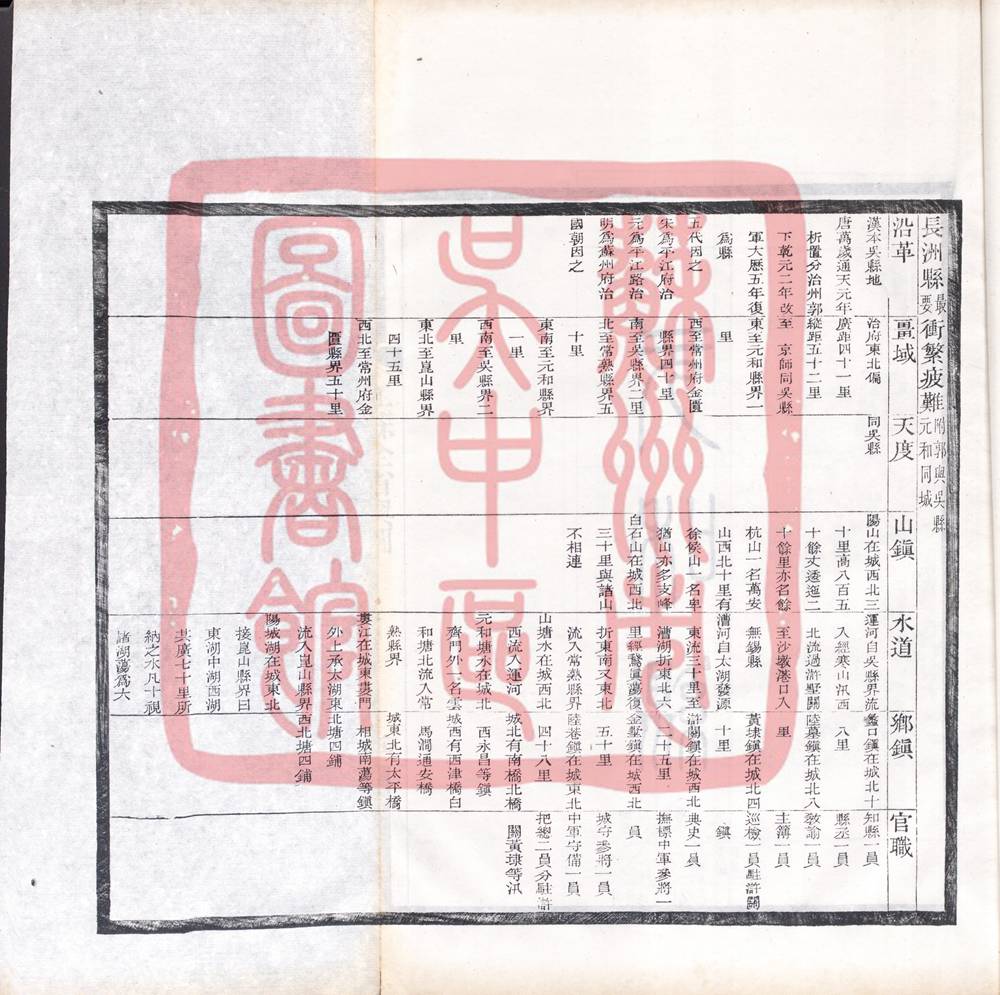 長洲縣 最要 衝繁疲難 附郭與吳縣元和同城
沿革
漢本吳縣地
唐萬歲通天元年
析置分治州郭
下乾元二年改
軍大歷五年復
為縣
五代因之
宋為平江府治
元為平江路治
明為蘇州府治
國朝因之
畺域
治府東北偏
廣距四十一里
縱距五十二里
至 京師同吳縣
東至元和縣界一
里
西至常州府金匱
縣界四十里
南至吳縣界二里
北至常熟縣界五
十里
東南至元和縣界
一里
西南至吳縣界二
里
東北至崑山縣界
四十五里
西北至常州府金
匱縣界五十里
天度
同吳縣
山鎭
陽山在城西北三
十里高八百五
十餘丈逶迤二
十餘里亦名餘
杭山一名萬安
山西北十里有
徐侯山一名卑
猶山亦多支峰
白石山在城西北
三十里與諸山
不相連
水道
運河自吳縣界流
入經寒山汛西
北流過滸墅關
至沙墩港口入
無錫縣
漕河自太湖發源
東流三十里至
漕湖折東北六
里經鵞眞蕩復
折東南又東北
流入常熟縣界
山塘水在城西北
西流入運河
元和塘水在城北
齊門外一名雲
和塘北流入常
熟縣界
婁江在城東婁門
外上承太湖東
流入崑山縣界
陽城湖在城東北
接崑山縣界曰
東湖中湖西湖
其廣七十里所
納之水凡十視
諸湖蕩為大
鄉鎭
蠡口鎭在城北十
八里
陸墓鎭在城北八
里
黃埭鎭在城北四
十里
滸關鎭在城西北
二十五里
金墅鎭在城西北
五十里
陸巷鎭在城東北
四十八里
城北有南橋北橋
西永昌等鎭
城西有西津橋白
馬澗通安橋
城東北有太平橋
相城南蕩等鎭
北塘四鋪
西北塘四鋪
官職
知縣一員
縣丞一員
教諭一員
主簿一員
巡檢一員駐滸關
鎭
典史一員
撫標中軍參將一
員
城守參將一員
中軍守備一員
把總二員分駐滸
關黃埭等汛
蘇州市
吳中區
圖書館